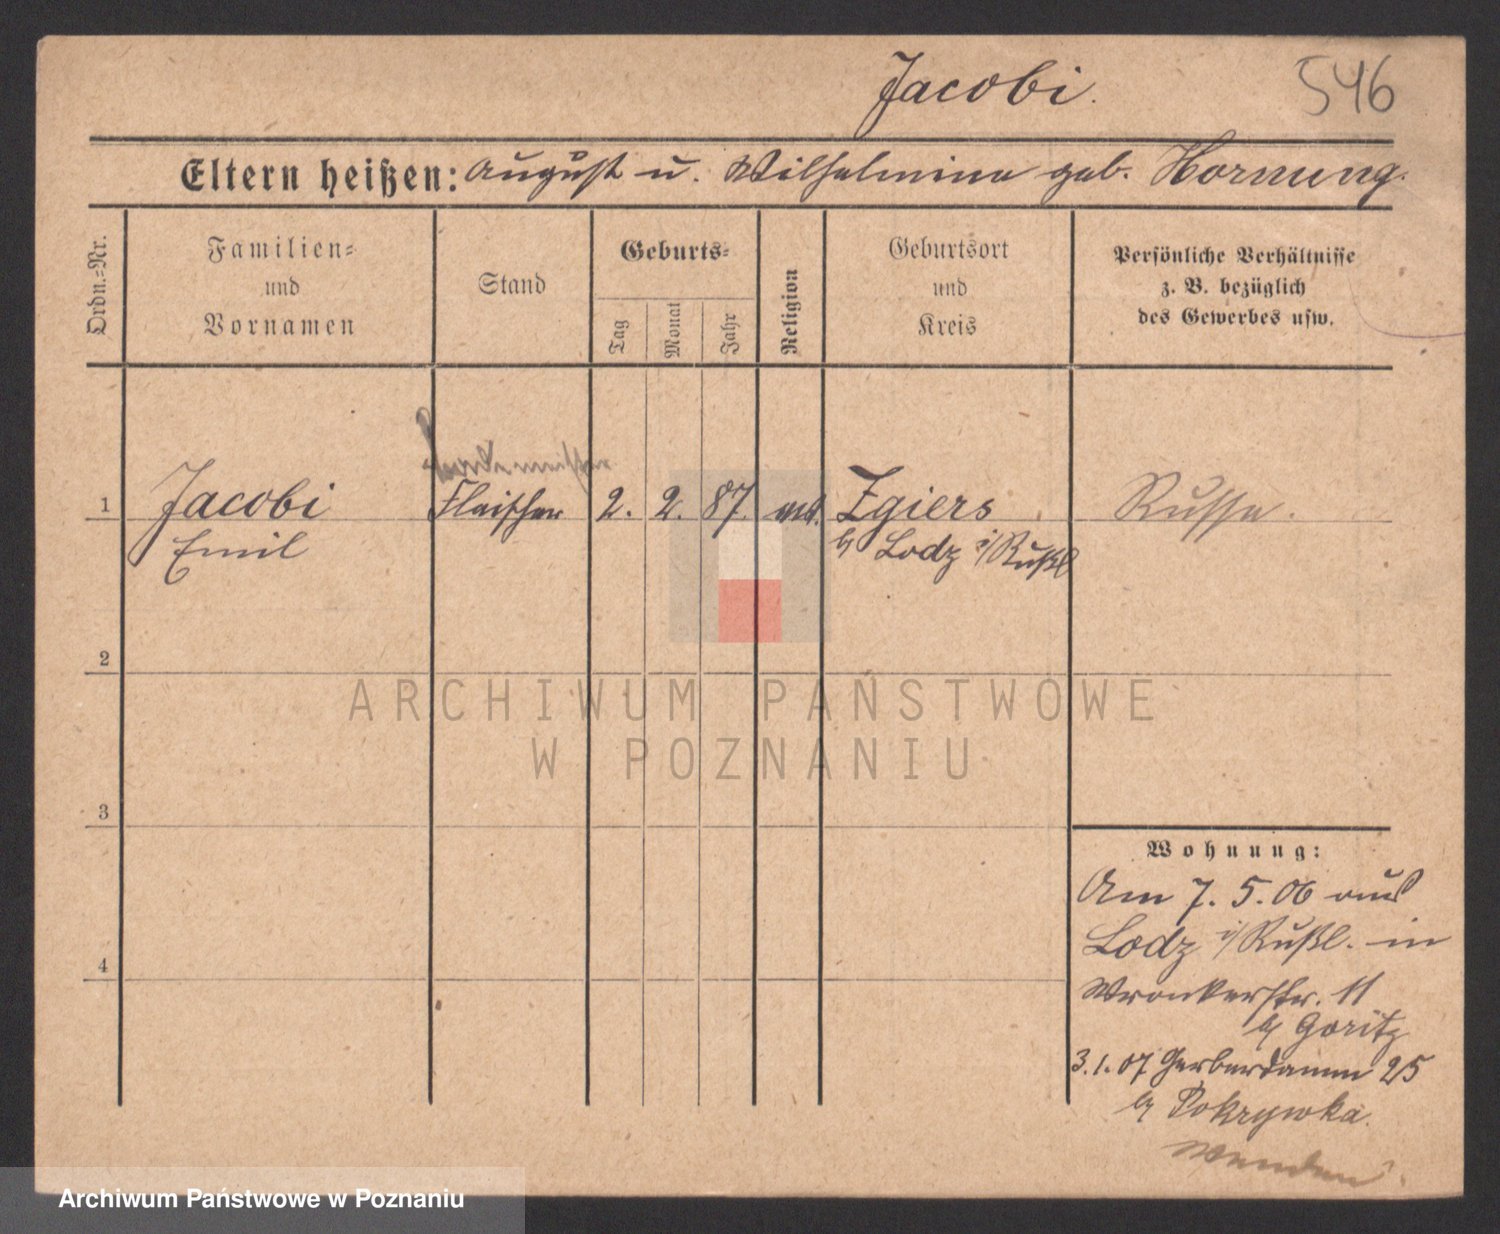 Jacobi.
546
Eltern heißen: August u. Wilhelmine geb. Hornung.
Ordn.-Nr.
Familien-
und
Vornamen
Stand
Geburts-
Tag
Monat
Jahr
Religion
Geburtsort
und
Kreis
Persönliche Verhältnisse
z. B. bezüglich
des Gewerbes usw.
1
Jacobi
Emil
Fleischer
2.
2.
87.
Zgiers
b/ Lodz i/Rußl
Russe.
2
3
4
ARCHIWUM PAŃSTWOWE
W POZNANIU
Wohnung:
Am 7. 5. 06 aus
Lodz i/Rußl. in
Wronkerstr. 11
b/ Goritz
3.1.07 Gerberdamm 25
b/ Pokrzywka.
Wenden!
Archiwum Państwowe w Poznaniu